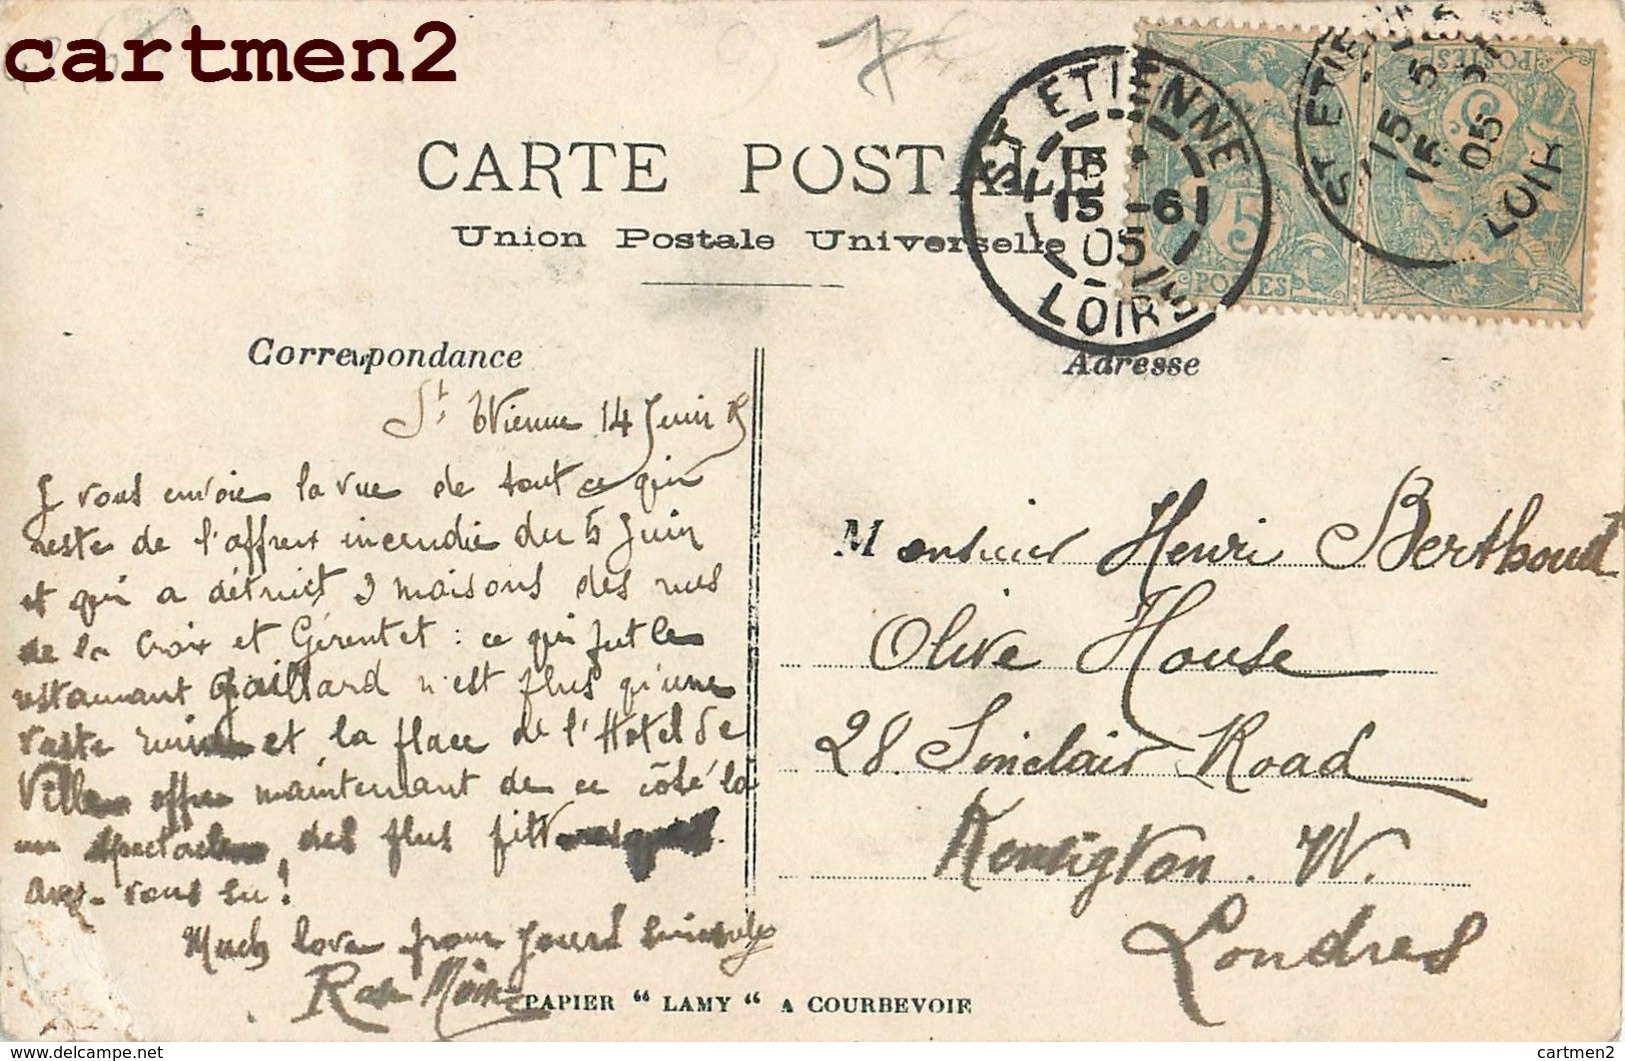 cartmen2
CARTE POSTALE
Union Postale Universelle
ST ETIENNE
15 -6
05
LOIRE
5
POSTES
ST ETIENNE
15
05
LOIRE
5
POSTES
Correspondance
Adresse
St. Etienne 14 Juin
J vous envoie la vue de tout ce qui
reste de l'affreux incendie du 5 Juin
et qui a détruit 3 maisons des rues
de la Croix et Gérentet : ce qui fut le
restaurant Gaillard n'est plus qu'une
vaste ruine et la place de l'Hotel de
Ville offre maintenant de ce côté là
un spectacle des plus pittoresques.
avez-vous su!
Much love from yours sincerely
Monsieur Henri Berthoud
Olive House
28. Sinclair Road
Kensigton. W.
Londres
PAPIER “ LAMY “ A COURBEVOIE
https://www.delcampe.net
cartmen2